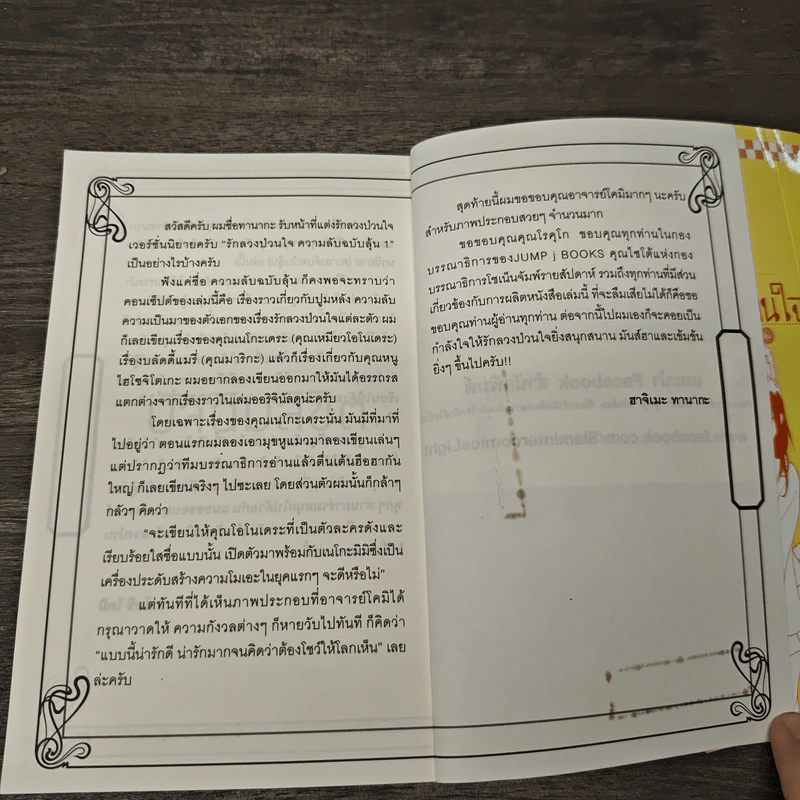 สวัสดีครับ ผมชื่อทานากะ รับหน้าที่แต่งรักลวงป่วนใจ
เวอร์ชั่นนิยายครับ "รักลวงป่วนใจ ความลับฉบับลุ้น 1"
เป็นอย่างไรบ้างครับ
ฟังแค่ชื่อ ความลับฉบับลุ้น ก็คงพอจะทราบว่า
คอนเซ็ปต์ของเล่มนี้คือ เรื่องราวเกี่ยวกับปูมหลัง ความลับ
ความเป็นมาของตัวเอกของเรื่องรักลวงป่วนใจแต่ละตัว ผม
ก็เลยเขียนเรื่องของคุณเนโกะเดระ (คุณเหมียวโอโนเดระ)
เรื่องบลัดดี้แมรี่ (คุณมาริกะ) แล้วก็เรื่องเกี่ยวกับคุณหนู
ไฮโซจิโตเกะ ผมอยากลองเขียนออกมาให้มันได้อรรถรส
แตกต่างจากเรื่องราวในเล่มออริจินัลดูน่ะครับ
โดยเฉพาะเรื่องของคุณเนโกะเดระนั้น มันมีที่มาที่
ไปอยู่ว่า ตอนแรกผมลองเอามุขหูแมวมาลองเขียนเล่นๆ
แต่ปรากฏว่าทีมบรรณาธิการอ่านแล้วตื่นเต้นฮือฮากัน
ใหญ่ ก็เลยเขียนจริงๆ ไปซะเลย โดยส่วนตัวผมนั้นก็กล้าๆ
กลัวๆ คิดว่า
"จะเขียนให้คุณโอโนเดระที่เป็นตัวละครดังและ
เรียบร้อยใสซื่อแบบนั้น เปิดตัวมาพร้อมกับเนโกะมิมิซึ่งเป็น
เครื่องประดับสร้างความโมเอะในยุคแรกๆ จะดีหรือไม่"
แต่ทันทีที่ได้เห็นภาพประกอบที่อาจารย์โคมิได้
กรุณาวาดให้ ความกังวลต่างๆ ก็หายวับไปทันที ก็คิดว่า
"แบบนี้น่ารักดี น่ารักมากจนคิดว่าต้องโชว์ให้โลกเห็น" เลย
ล่ะครับ
สุดท้ายนี้ผมขอขอบคุณอาจารย์โคมิมากๆ นะครับ
สำหรับภาพประกอบสวยๆ จำนวนมาก
ขอขอบคุณคุณโรคุโก ขอบคุณทุกท่านในกอง
บรรณาธิการของJUMP j BOOKS คุณไซโต้แห่งกอง
บรรณาธิการโชเน็นจัมพ์รายสัปดาห์ รวมถึงทุกท่านที่มีส่วน
เกี่ยวข้องกับการผลิตหนังสือเล่มนี้ ที่จะลืมเสียไม่ได้ก็คือขอ
ขอบคุณท่านผู้อ่านทุกท่าน ต่อจากนี้ไปผมเองก็จะคอยเป็น
กำลังใจให้รักลวงป่วนใจยิ่งสนุกสนาน มันส์ฮาและเข้มข้น
ยิ่งๆ ขึ้นไปครับ!!
ฮาจิเมะ ทานากะ